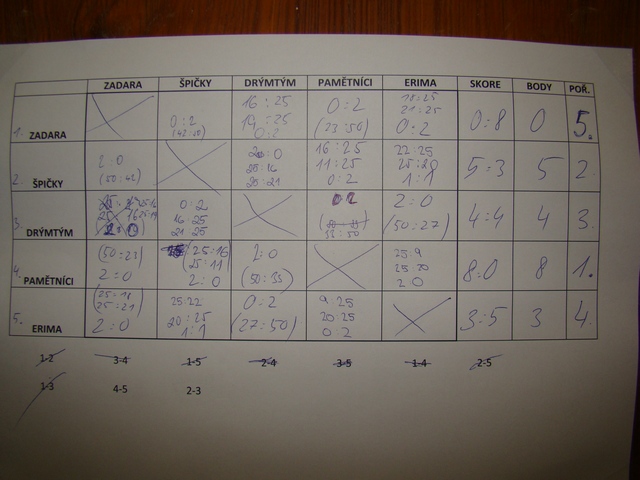 ZADARA ŠPIČKY DRÝMTÝM PAMĚTNÍCI ERIMA SKORE BODY POŘ.
1. ZADARA
0:2
16:25
19:25
0:2
0:2
(23:50)
18:25
21:25
0:2
0:8 0 5.
2. ŠPIČKY
2:0
(50:42)
2:0
25:16
25:21
16:25
11:25
0:2
22:25
1:1
5:3 5 2.
3. DRÝMTÝM
2:0
0:2
16 25
21 25
0:2
33:50
2:0
(50:27)
4:4 4 3.
4. PAMĚTNÍCI
(50:23)
2:0
(25:16
25:11)
2:0
2:0
(50:33)
25:9
25 20
2 0
8:0 8 1.
5. ERIMA
(25:18
25:21)
2:0
25:22
20:25
1:1
0:2
(27:50)
9 25
20:25
0:2
3:5 3 4.
1-2 3-4 1-5 2-4 3-5 1-4 2-5
1-3 4-5 2-3